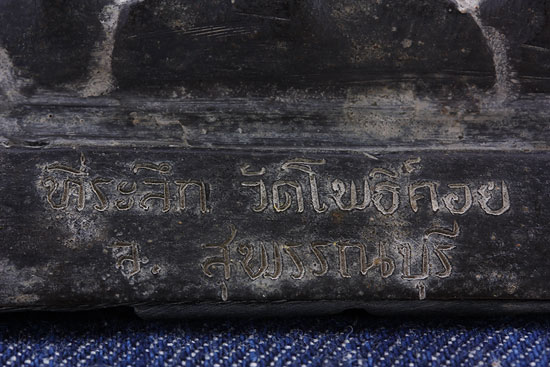 ที่ระลึก วัดโพธิ์คอย
จ. สุพรรณบุรี